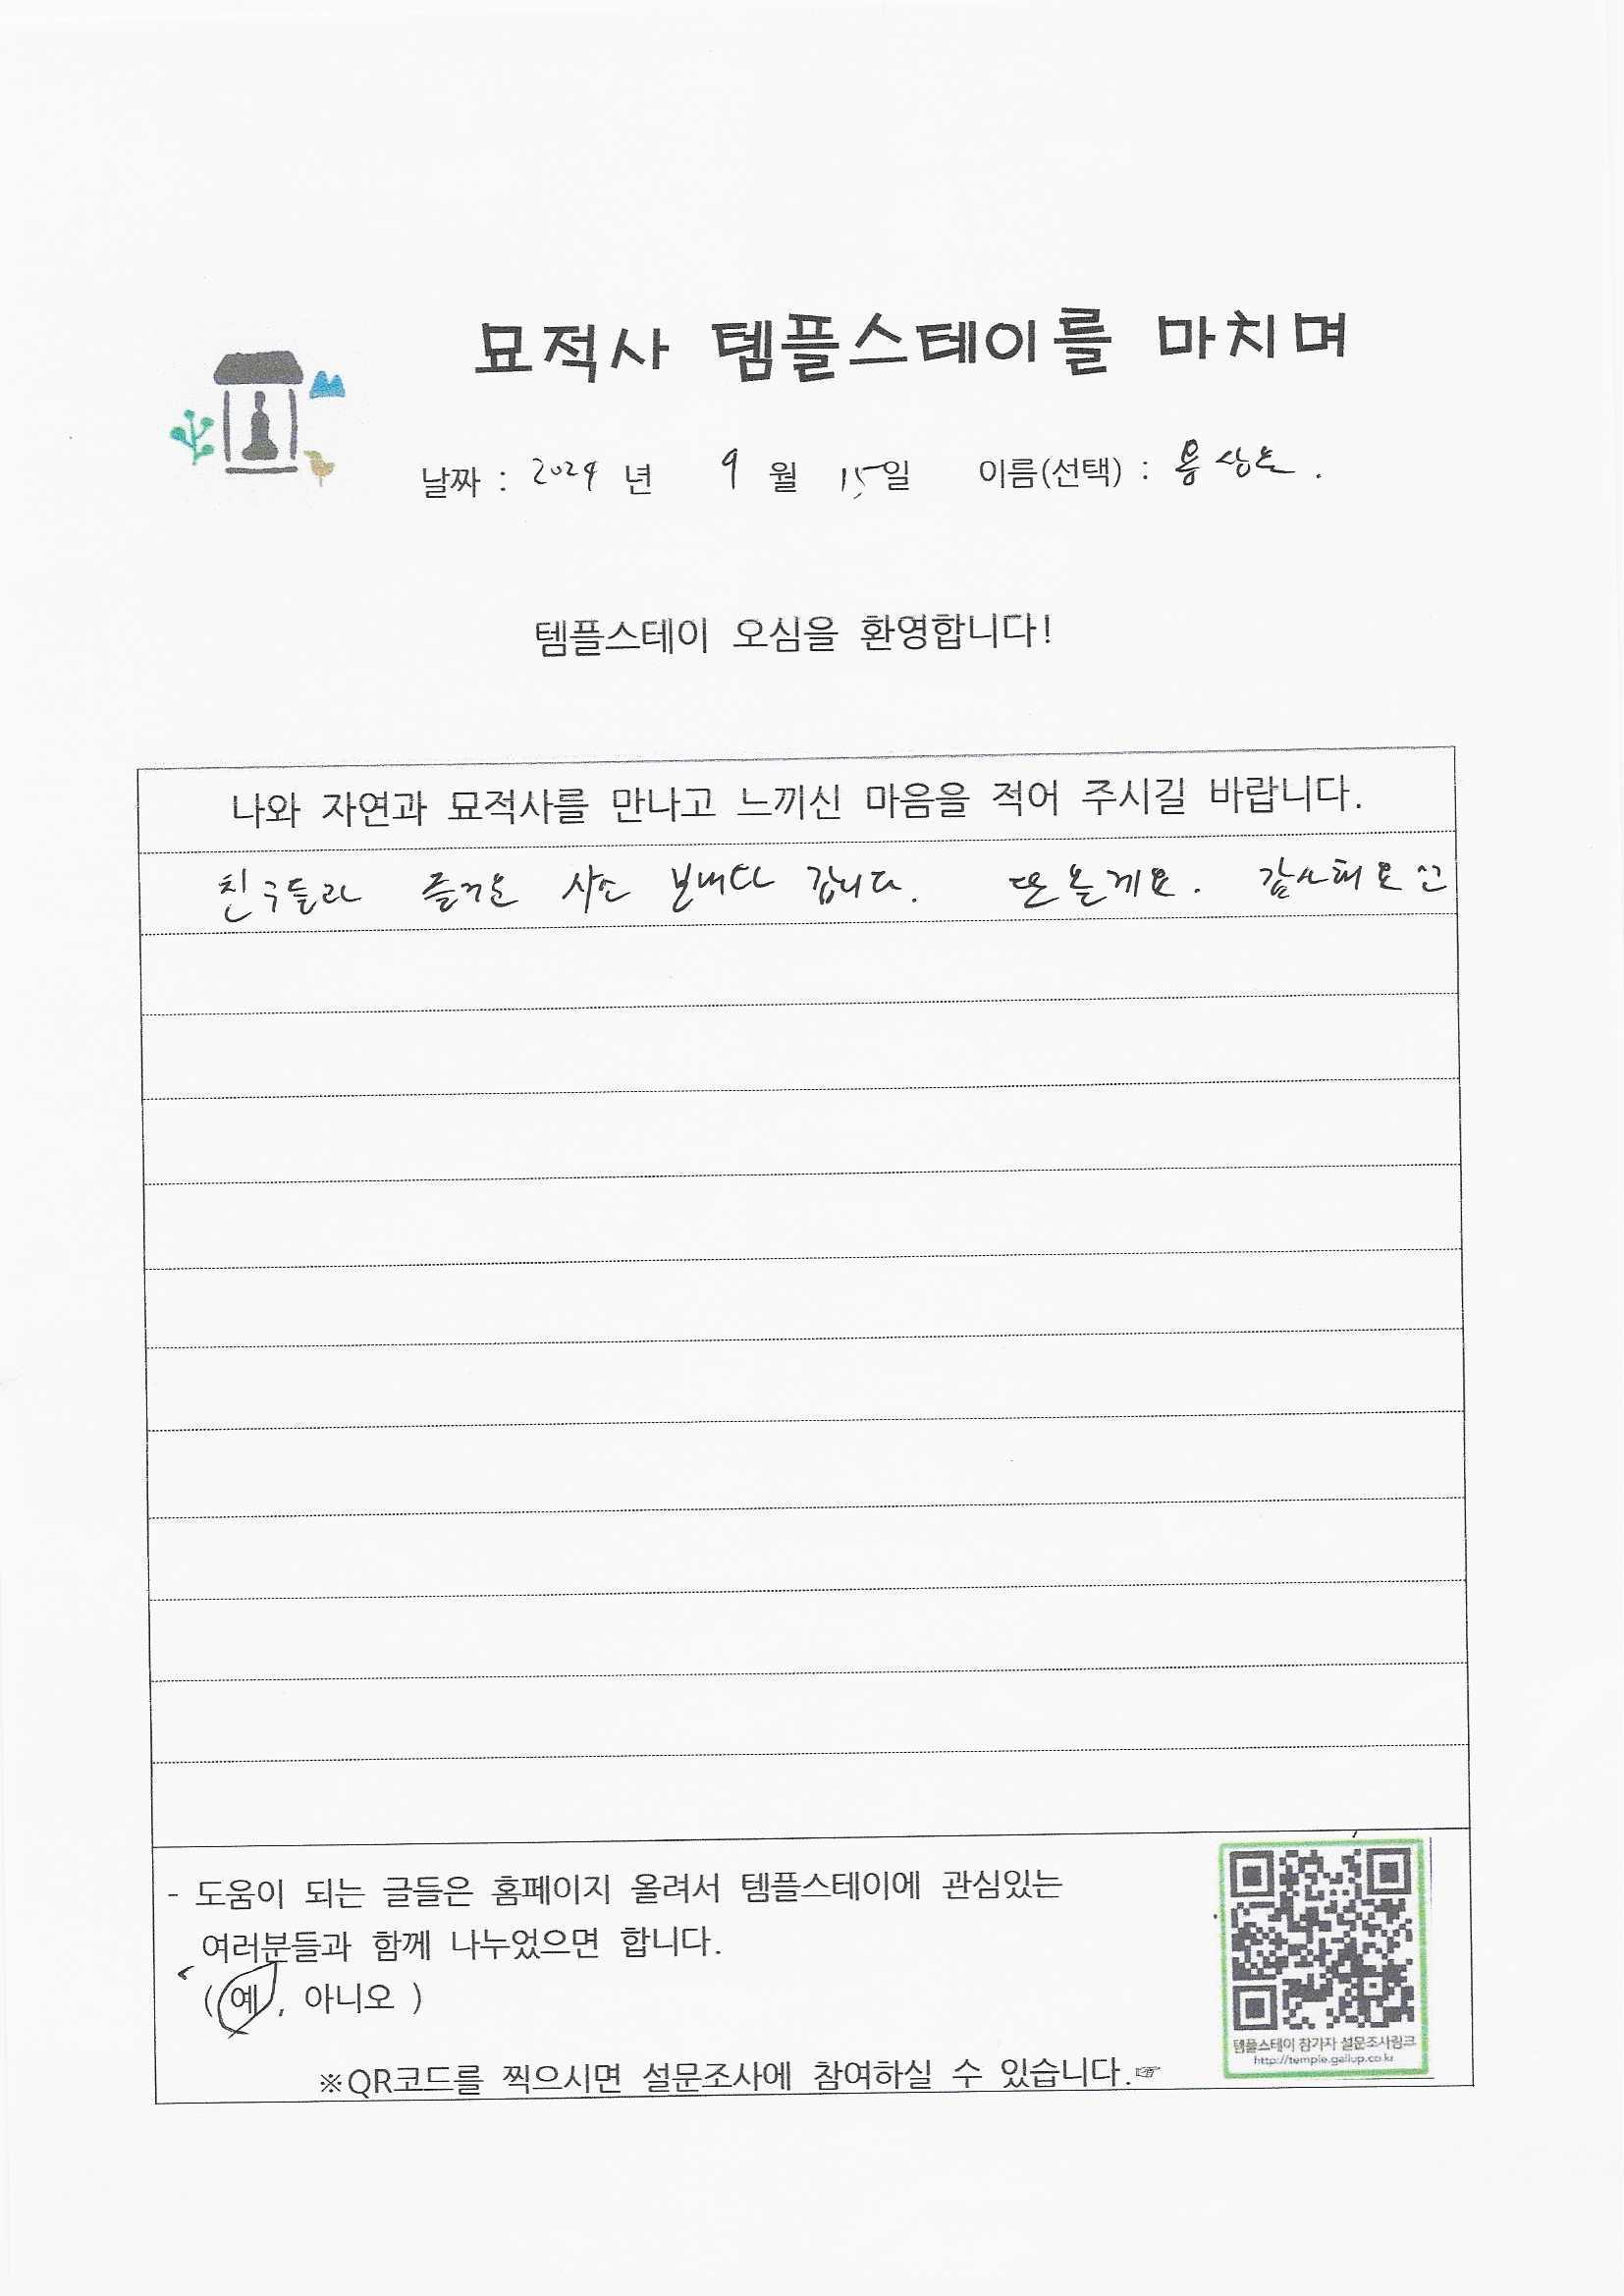 묘적사 템플스테이를 마치며
날짜 : 2024 년 9 월 15일 이름(선택) :
템플스테이 오심을 환영합니다!
나와 자연과 묘적사를 만나고 느끼신 마음을 적어 주시길 바랍니다.
친구들과 즐거운 시간 보내다 갑니다. 또 올게요. 감사해요
- 도움이 되는 글들은 홈페이지 올려서 템플스테이에 관심있는
여러분들과 함께 나누었으면 합니다.
(예, 아니오 )
※QR코드를 찍으시면 설문조사에 참여하실 수 있습니다.☞
템플스테이 참가자 설문조사링크
http://temple.gallup.co.kr